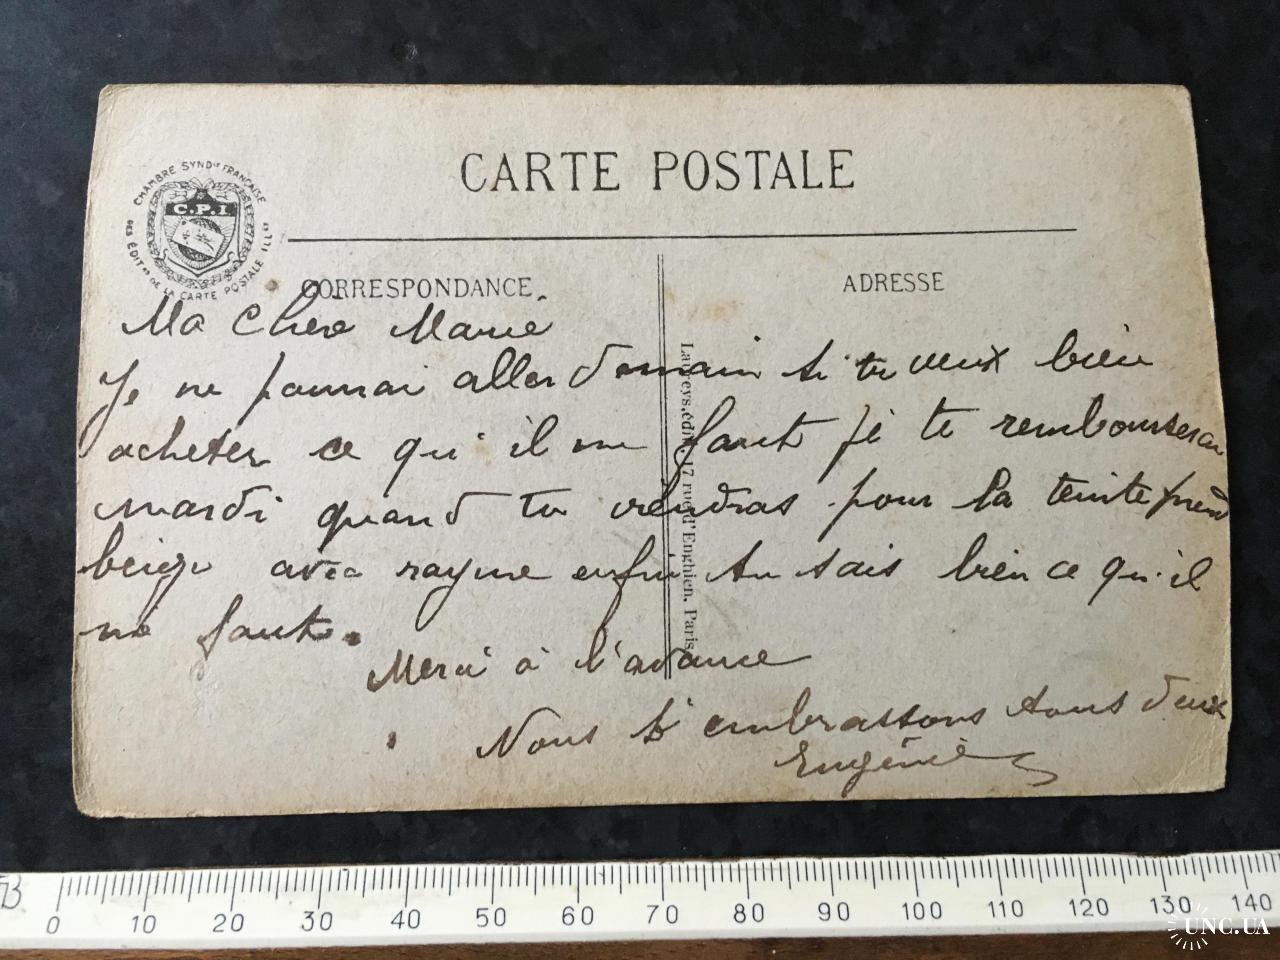 CARTE POSTALE
CHAMBRE SYND^le FRANÇAISE
DES ÉDIT^rs DE LA CARTE POSTALE ILL^ée
C.P.I
CORRESPONDANCE
ADRESSE
Ma Chère Marie
Je ne pourrai aller demain si tu veux bien
acheter ce qu'il me faut je te rembourserai
mardi quand tu viendras pour la teinte prend
beige avec rayure enfin tu sais bien ce qu'il
me faut.
Merci à l'avance
Nous t'embrassons tous deux
Eugénie
édit. 17 rue d'Enghien, Paris
B
0 10 20 30 40 50 60 70 80 90 100 110 120 130 140
UNC.UA